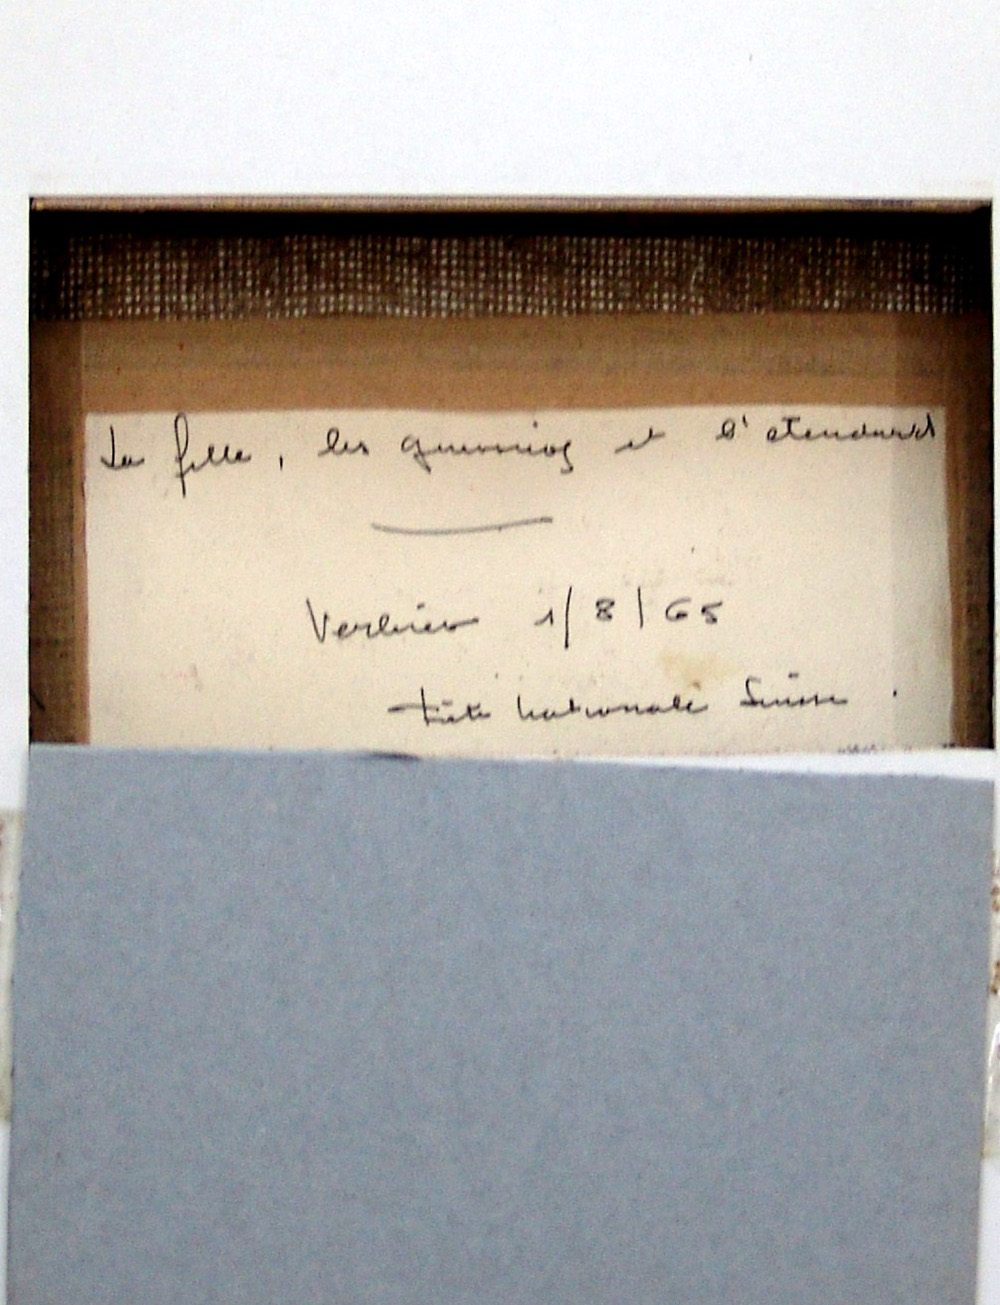 La fille, les guerriers et l'étendard
Verbier 1/8/65
Fête nationale Suisse.